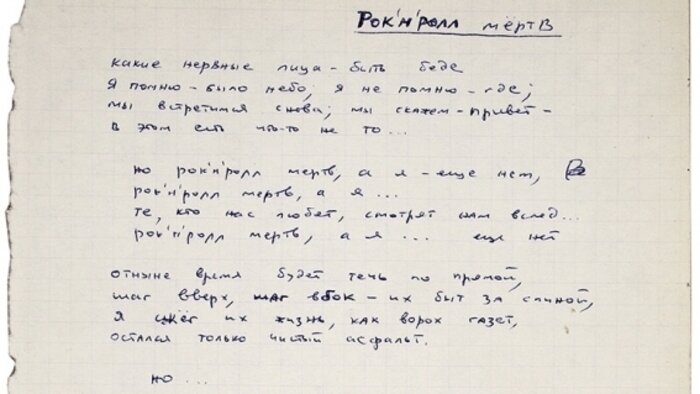 Рок'н'ролл мёртв
какие нервные лица – быть беде
Я помню – было небо, я не помню – где;
мы встретимся снова; мы скажем – привет –
в этом есть что-то не то ...
но рок'н'ролл мертв, а я – еще нет,
рок'н'ролл мертв, а я ...
те, кто нас любят, смотрят нам вслед...
рок'н'ролл мертв, а я ... еще нет
отныне время будет течь по прямой,
шаг вверх, шаг вбок – их быт за спиной,
я сжёг их жизнь, как ворох газет,
остался только чистый асфальт.
но ...